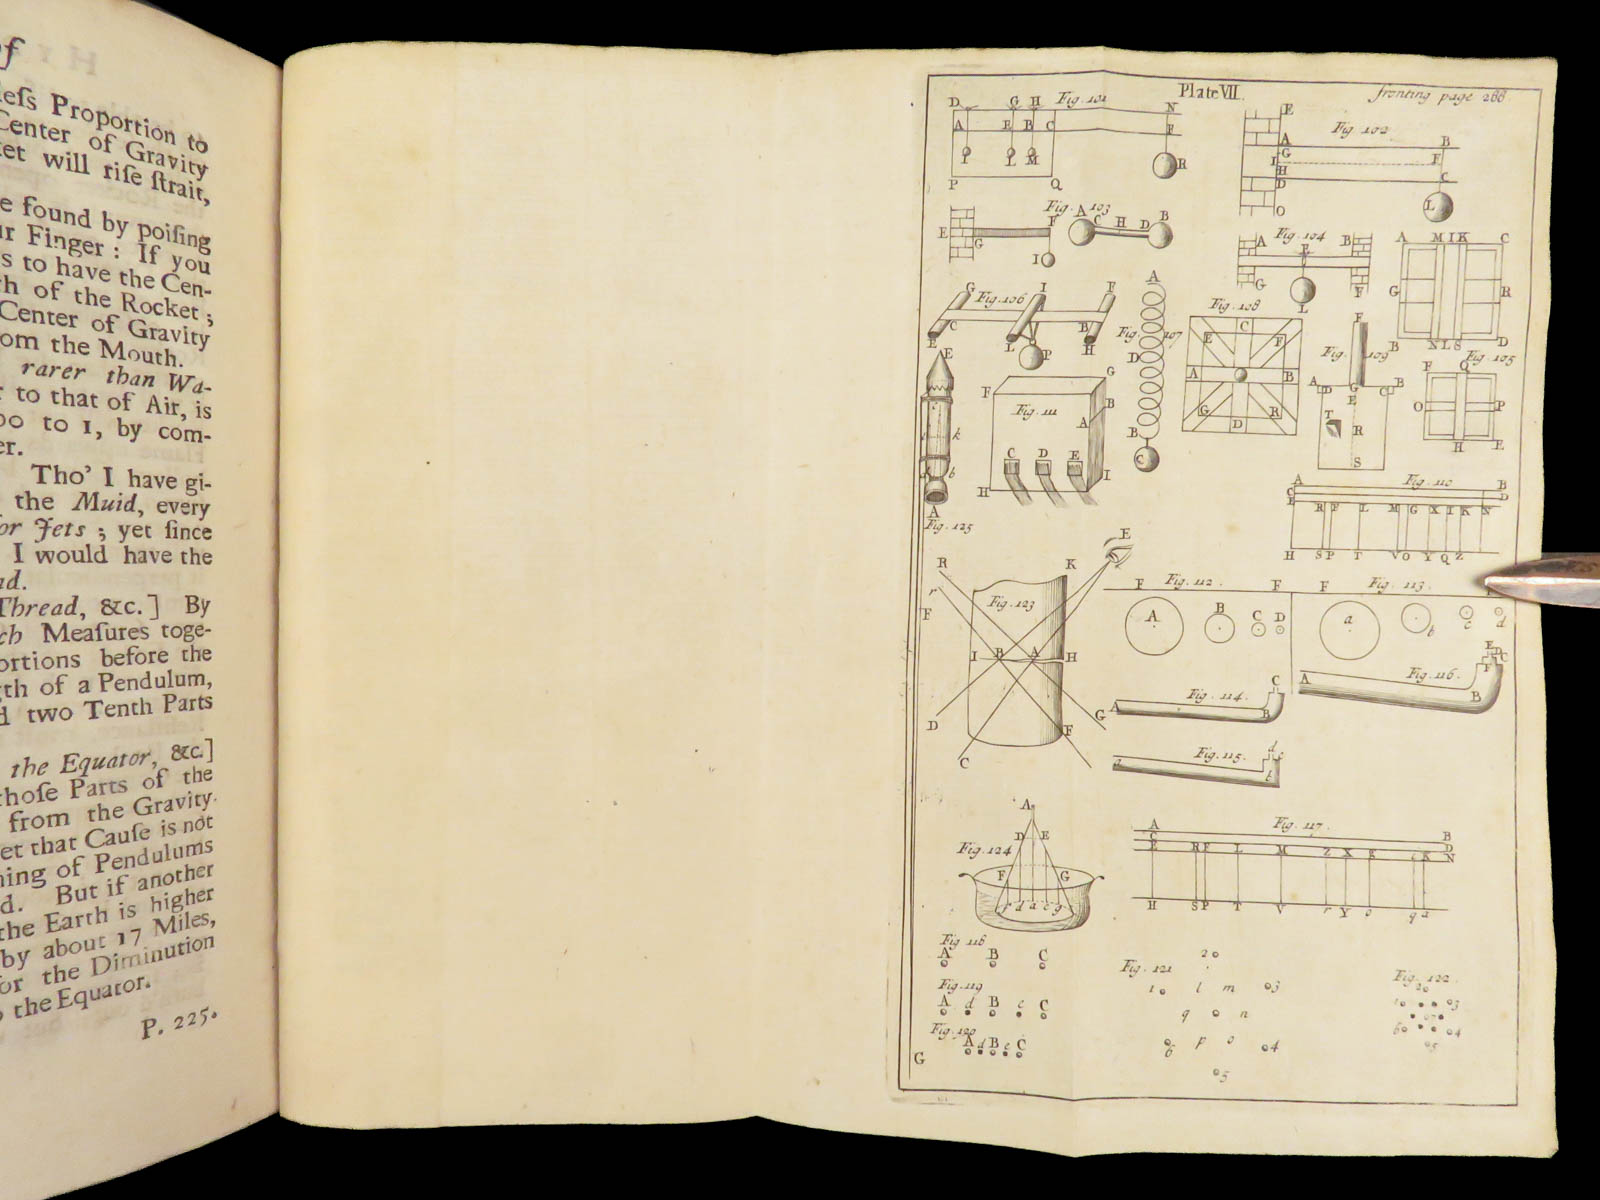 of
leſs Proportion to
Center of Gravity
ket will riſe ſtrait,
e found by poiſing
ur Finger : If you
s to have the Cen-
h of the Rocket ;
Center of Gravity
om the Mouth.
rarer than Wa-
to that of Air, is
00 to 1, by com-
er.
Tho' I have gi-
the Muid, every
or Jets ; yet ſince
I would have the
ad.
Thread, &c. ] By
ch Meaſures toge-
ortions before the
gth of a Pendulum,
d two Tenth Parts
the Equator, &c.]
thoſe Parts of the
from the Gravity.
et that Cauſe is not
ning of Pendulums
d. But if another
the Earth is higher
by about 17 Miles,
or the Diminution
o the Equator.
P. 225.
Plate VII.
fronting page 288.
Fig. 101
D G H N
A E B C F
I L M R
P Q
Fig. 102
E
A B
G F
I
H C
D
O L
Fig. 103
E F G I
A C H D B
Fig. 104
A E B
G L F
A M I K C
G R
B N L S D
Fig. 105
F Q
O P
H E
Fig. 106
G I F
C B
E L P H
Fig. 107
A
D
B
C
Fig. 108
E C F
A B
G D R
Fig. 109
F
A D G C B
E
T R
S
Fig. 110
A B
C D
E R F L M G X I K N
H S P T V O Y Q Z
Fig. 111
F G
B
A
C D E
H I
E
k
b
A
Fig. 125
Fig. 112.
F F
A B C D
Fig. 113.
F
a b c d
Fig. 123
E
R K
r
F
I B A H
D G
F
C
Fig. 114.
A B C
Fig. 115.
Fig. 116.
A B C
Fig. 117.
A B
C D
E R F L M Z X K N
H S P T V r Y o q a
Fig. 124
A
D E
F G
Fig. 118
A B C
Fig. 119
A d B e C
Fig. 120
A d B e C
G
Fig. 121
2
1 l m 3
q n
6 p o 4
5
Fig. 122
2
1 3
6 4
5